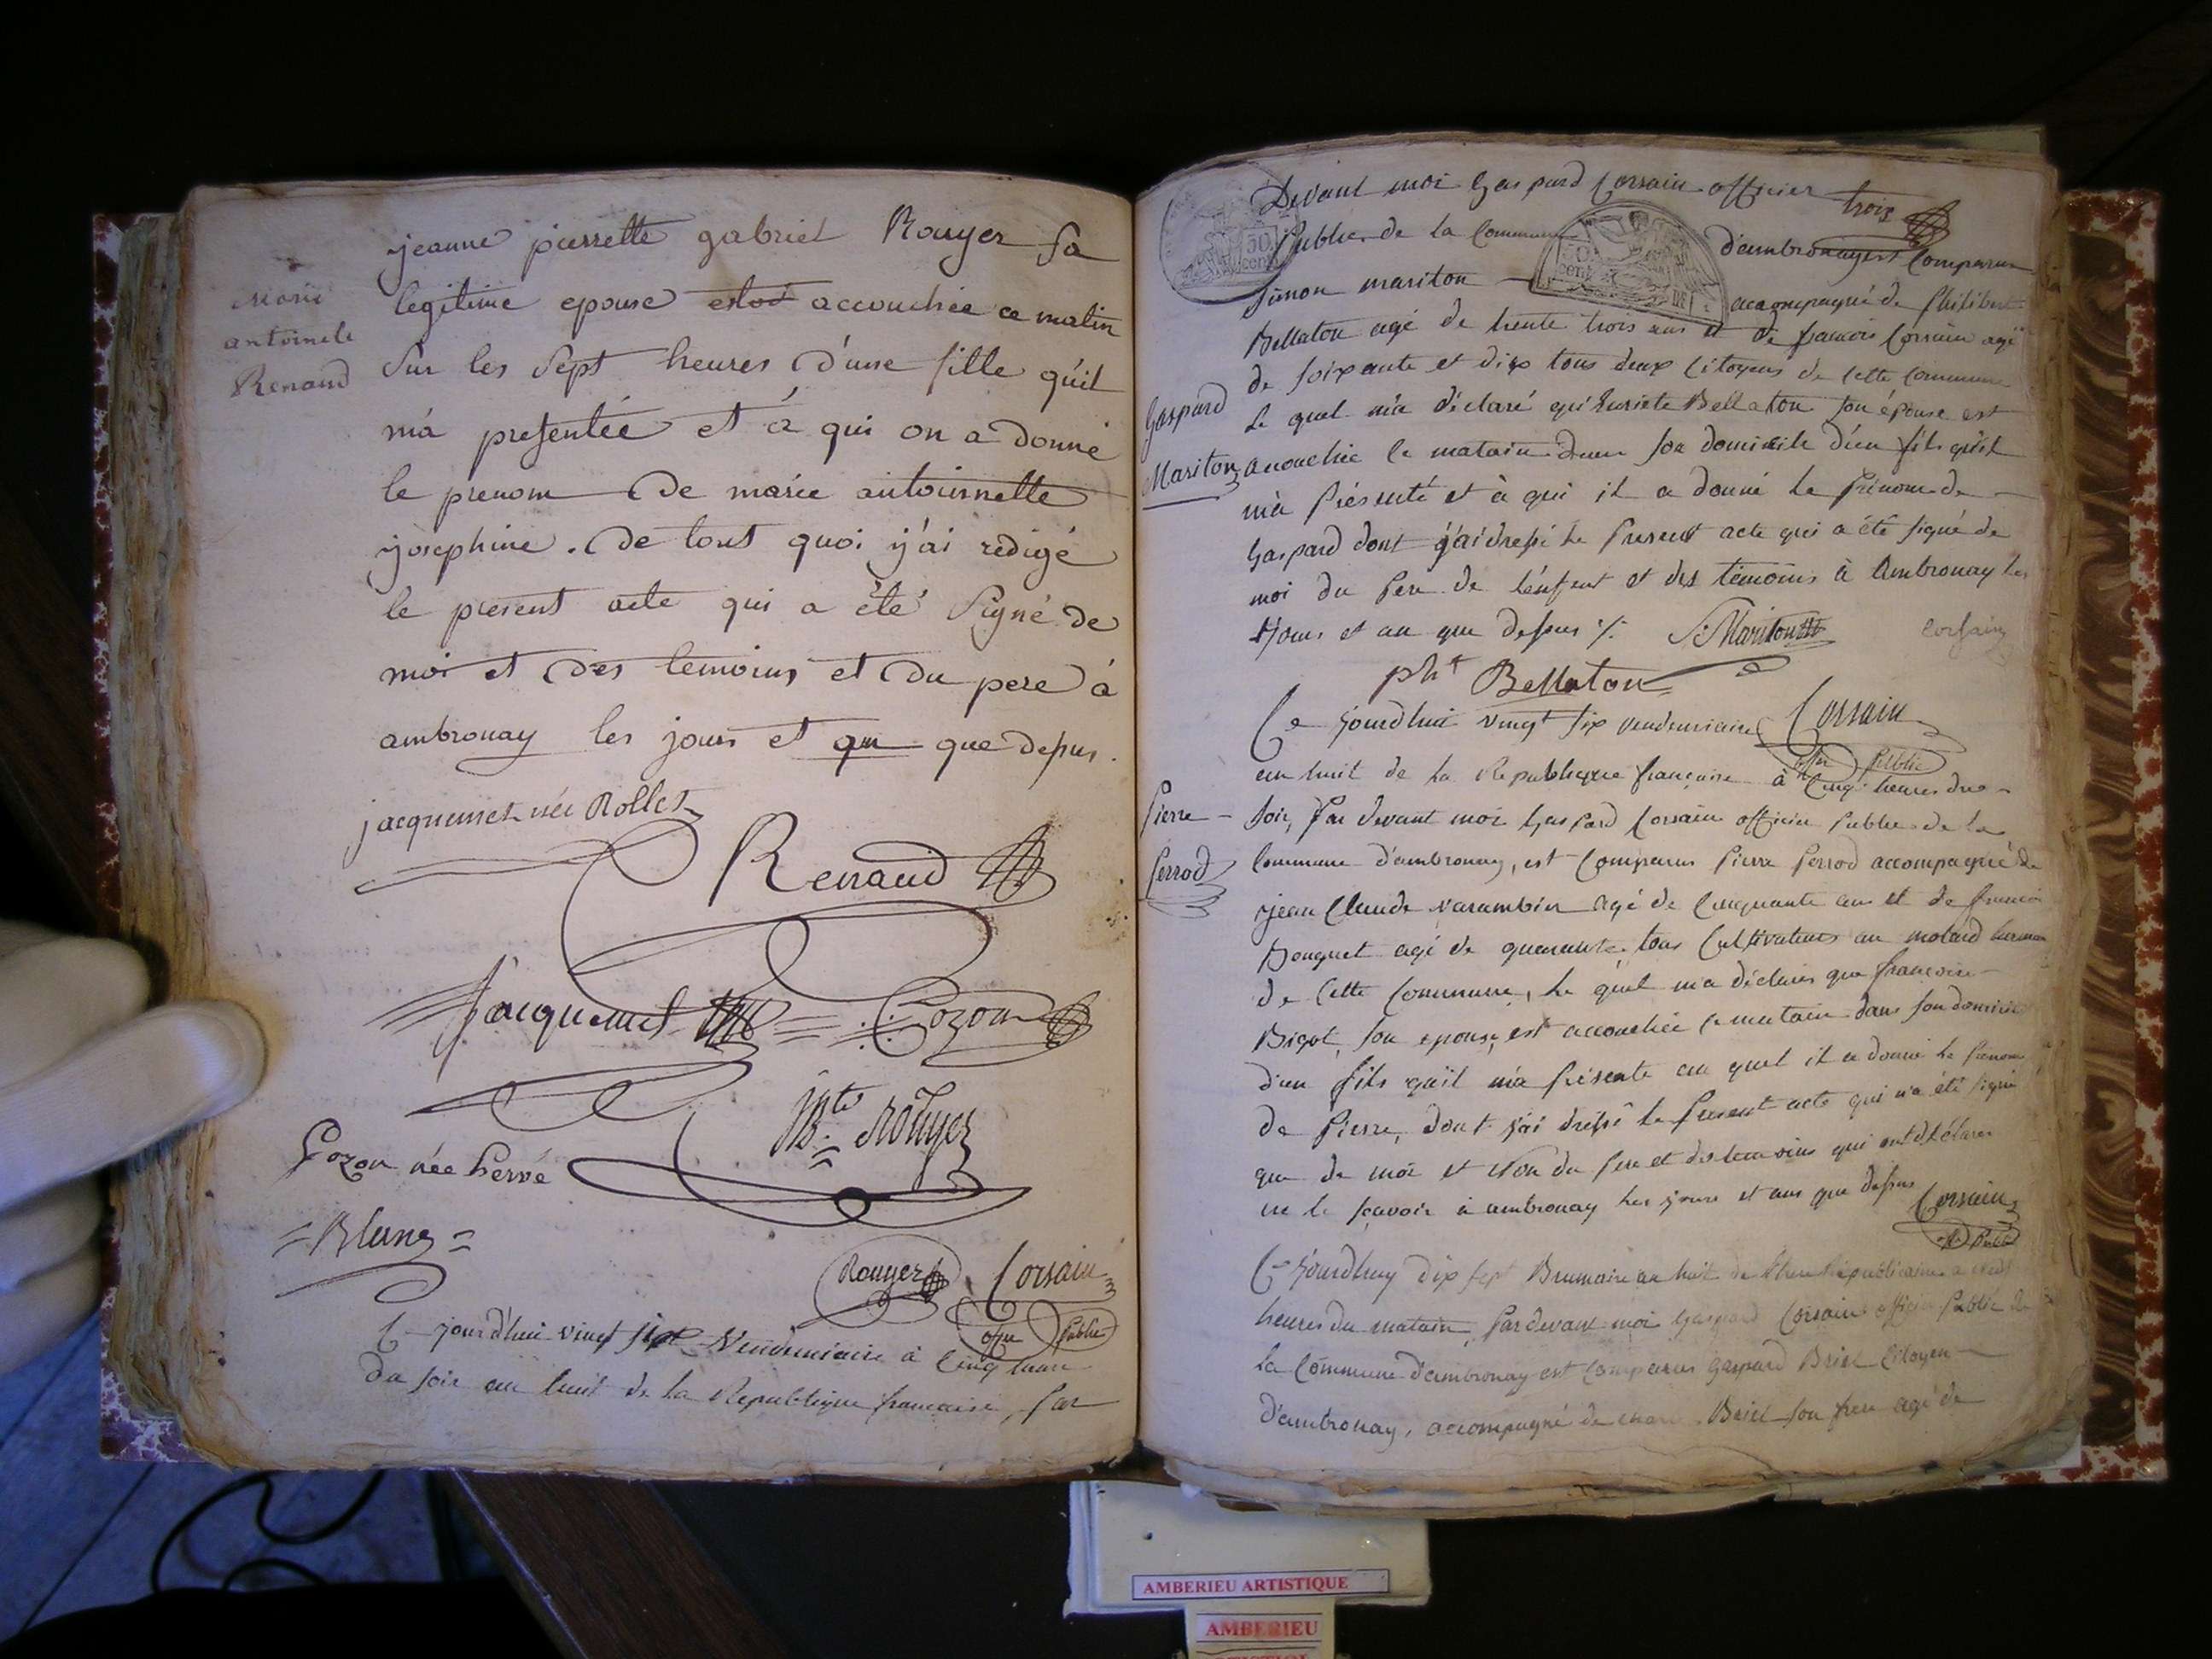 Marie
antoinete
Renaud
jeanne pierrette gabriel Rouyer sa
legitime epouse estoit accouchée ce matin
sur les sept heures d'une fille qu'il
m'a presentée et à qui on a donné
le prenom de marie antoinnette
josephine. de tout quoi j'ai redigé
le present acte qui a été signé de
moi et des temoins et du pere à
ambronay les jours et an que desus.
jacquemet née Rollet
Renaud
Jacquemet Cozon
Rouyer
Cozon née hervé
=Blanc=
Rouyer Corsain
offier Public
Ce jourd'hui vingt sixt Vendemiaire à Cinq heure
du soir an huit de la Republique francaise, Par
trois
Devant moi Gaspard Corsain officier
Public de la Commune d'ambronay est Comparu
Simon mariton accompagné de Philibert
Bellaton agé de trente trois ans et de francois Corsain agé
de soixante et dix tous deux Citoyens de cette Commune
Gaspard
Mariton
Le quel m'a déclaré qu'Euriete Bellaton son épouse est
acouchée le matain dans son domicile d'un fils qu'il
m'à Présenté et à qui il a donné le Prénom de
Gaspard dont j'ai dressé le Present acte qui a été signé de
moi du Pere de l'enfent et des témoins à Ambronay les
Jours et an que dessus ./. S: Mariton Corsain
pht Bellaton
Corsain
offier Public
Ce Jourdhui vingt six vendemiaire
an huit de la Republique francaise à Cinq heures du
Pierre
Perrod
Soir, Par devant moi Gaspard Corsain officier Public de la
Commune d'ambronay, est Comparus Pierre Perrod accompagné de
jean Claude varambon agé de Cinquante ans et de francois
Bouquet agé de quarante tous Cultivateurs au molard
de Cette Commune, Le quel m'a déclaré que francoise
Bigot, son epouse, est accouchée ce matain dans son domicile
d'un fils qu'il m'a Présenté au quel il a donné le Prenom
de Pierre, dont j'ai dressé le Present acte qui n'a été signé
que de moi et non du Pere et des temoins qui ont déclarés
ne le sçavoir à ambronay les jours et ans que dessus
Corsain
offier Public
Ce Jourdhuy dix sept Brumaire an huit de Republicaine a
heures du matain, Par devant moi Gaspard Corsain officier Public de
La Commune d'ambronay est Comparus gaspard Briel Citoyen
d'ambronay, accompagné de Briel son frere agé de
AMBERIEU ARTISTIQUE
AMBERIEU